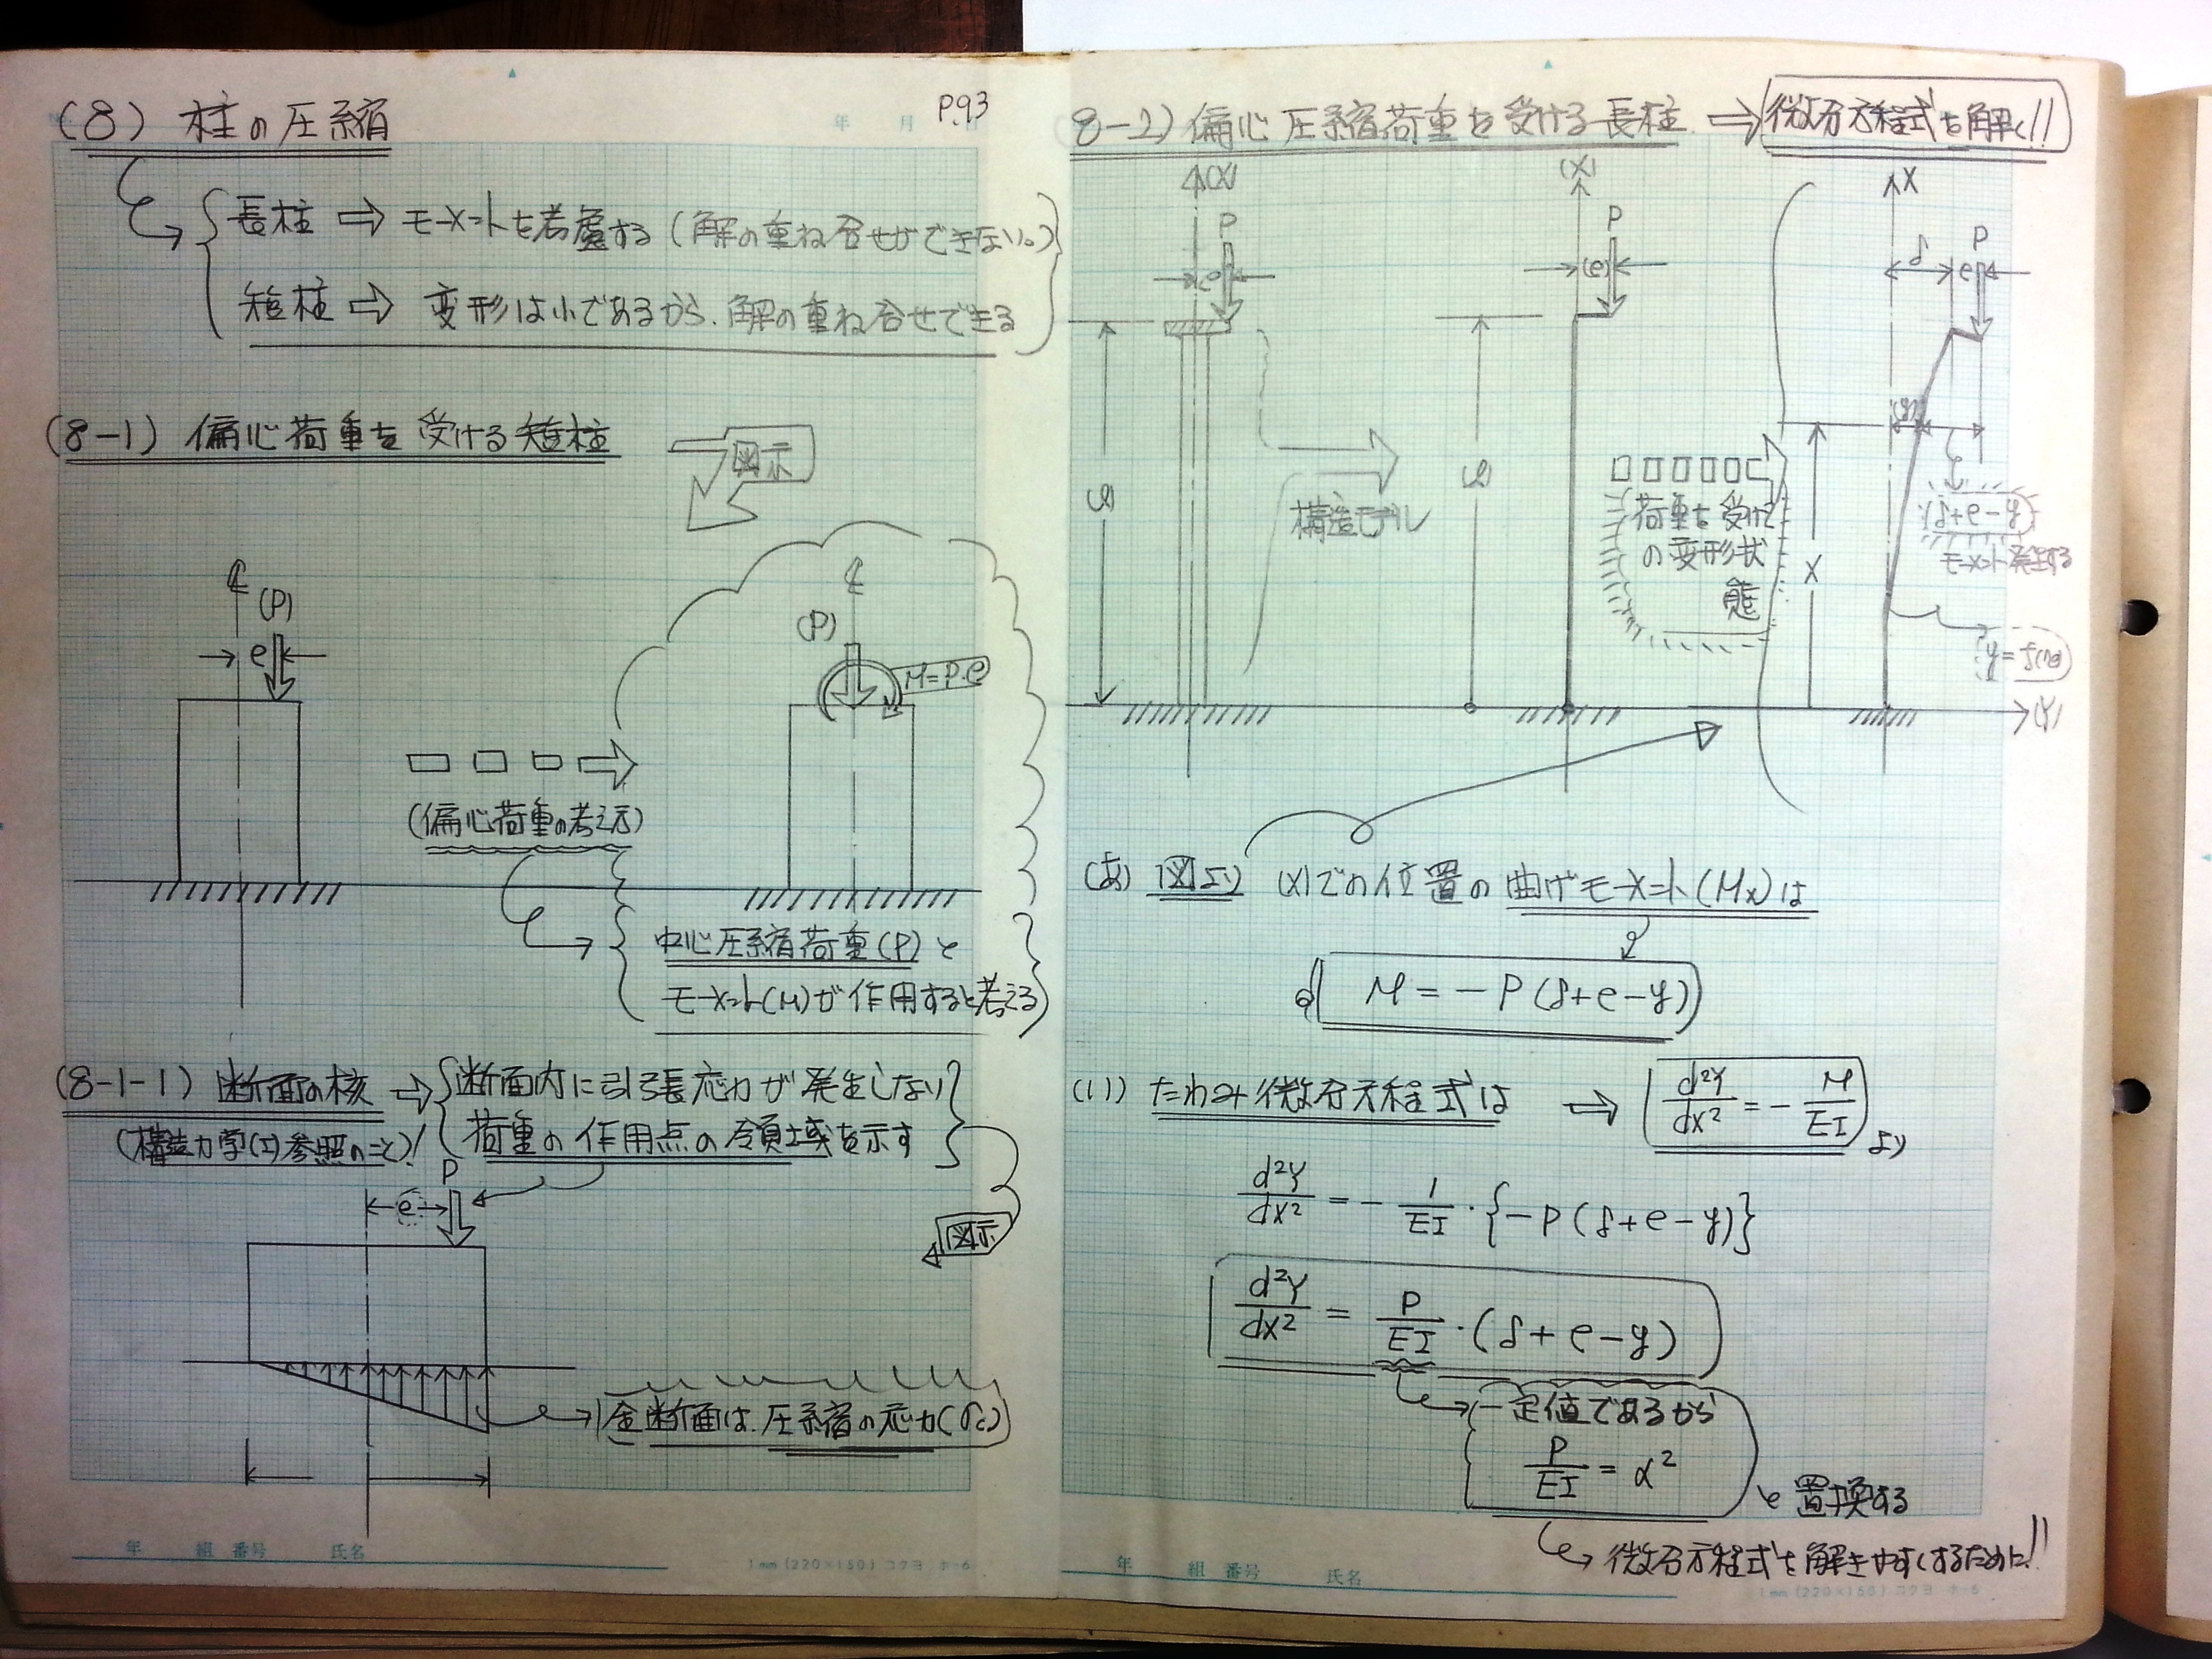 P.93
(8) 柱の圧縮
長柱 ⇒ モーメントを考慮する (解の重ね合せができない。)
短柱 ⇒ 変形は小であるから、解の重ね合せできる
(8-1) 偏心荷重を受ける短柱
図示
(P)
e
(P)
M=P・e
(偏心荷重の考え方)
中心圧縮荷重(P)と
モーメント(M)が作用すると考える
(8-1-1) 断面の核 ⇒ 断面内に引張応力が発生しない
(構造力学(I)参照のこと)! 荷重の作用点の領域を示す
P
e
図示
全断面は、圧縮の応力(σc)
年 組 番号 氏名
1mm (220×150) コクヨ ホ-6
8-2) 偏心圧縮荷重を受ける長柱 ⇒ 微分方程式を解く!!
(X)
P
e
l
構造モデル
(X)
P
(e)
l
荷重を受けて
の変形状
態
X
δ
P
e
(y)
X
(δ+e-y)
モーメント発生する
(Y)
(あ) 図より (X)での位置の曲げモーメント(Mx)は
M = -P(δ+e-y)
(い) たわみ微分方程式は ⇒ d²Y/dx² = - M/EI より
d²Y/dx² = - 1/EI・{-P(δ+e-y)}
d²Y/dx² = P/EI・(δ+e-y)
一定値であるから
P/EI = α²
と置換する
微分方程式を解きやすくするために!!
年 組 番号 氏名
1mm (220×150) コクヨ ホ-6